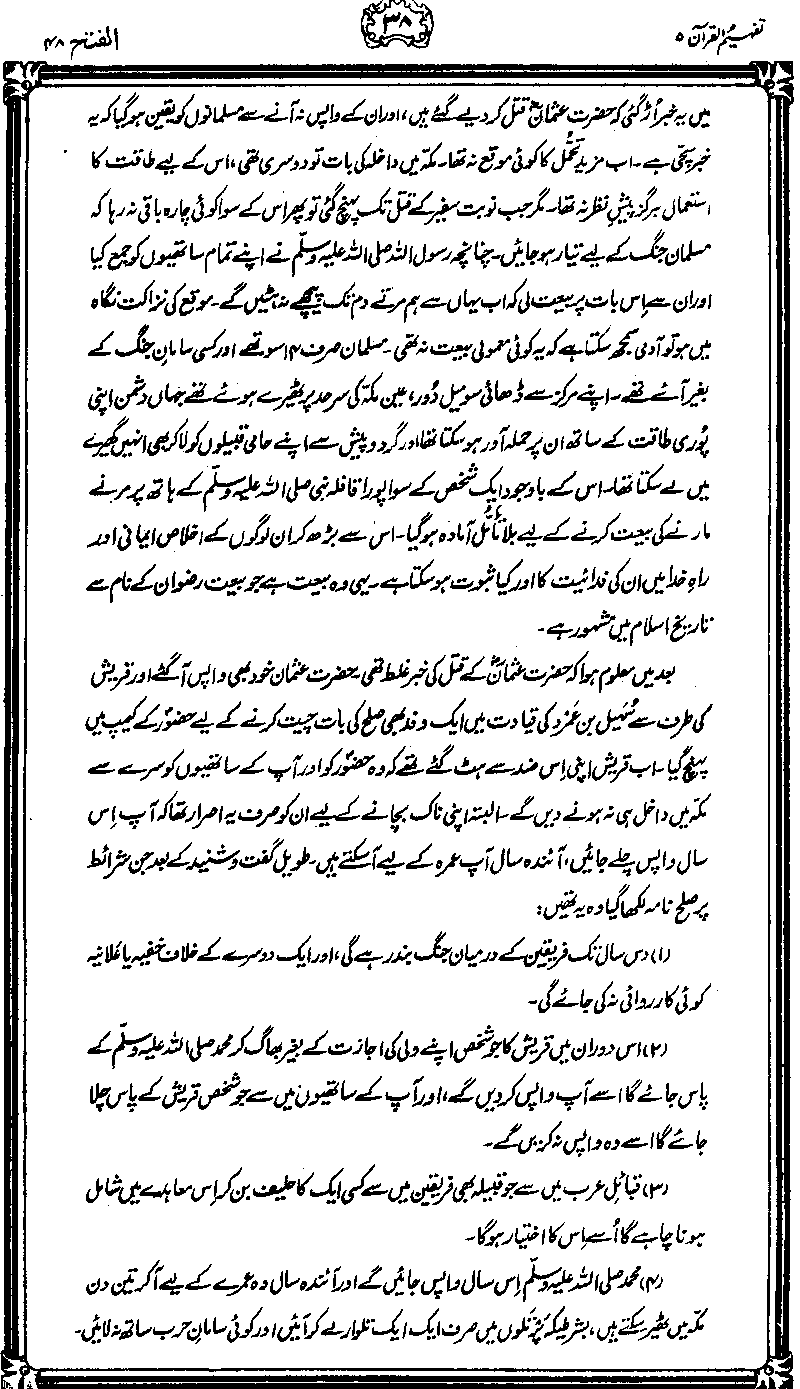 تفہیم القرآن ۵
۳۸
الفتح ۴۸
میں یہ خبر اُڑ گئی کہ حضرت عثمانؓ قتل کر دیے گئے ہیں، اور ان کے واپس نہ آنے سے مسلمانوں کو یقین ہو گیا کہ یہ
خبر سچی ہے۔ اب مزید تحمُّل کا کوئی موقع نہ تھا۔ مکہ میں داخلہ کی بات تو دوسری تھی، اس کے لیے طاقت کا
استعمال ہرگز پیشِ نظر نہ تھا۔ مگر جب نوبت سفیر کے قتل تک پہنچ گئی تو پھر اس کے سوا کوئی چارہ باقی نہ رہا کہ
مسلمان جنگ کے لیے تیار ہو جائیں۔ چنانچہ رسول اللہ صلی اللہ علیہ وسلّم نے اپنے تمام ساتھیوں کو جمع کیا
اور ان سے اِس بات پر بیعت لی کہ اب یہاں سے ہم مرتے دم تک پیچھے نہ ہٹیں گے۔ موقع کی نزاکت نگاہ
میں ہو تو آدمی سمجھ سکتا ہے کہ یہ کوئی معمولی بیعت نہ تھی۔ مسلمان صرف ۱۴ سو تھے اور کسی سامانِ جنگ کے
بغیر آئے تھے۔ اپنے مرکز سے ڈھائی سو میل دُور، عین مکّہ کی سرحد پر ٹھیرے ہوئے تھے جہاں دشمن اپنی
پُوری طاقت کے ساتھ ان پر حملہ آور ہو سکتا تھا اور گرد و پیش سے اپنے حامی قبیلوں کو لا کر بھی انہیں گھیرے
میں لے سکتا تھا۔ اس کے باوجود ایک شخص کے سوا پورا قافلہ نبی صلی اللہ علیہ وسلّم کے ہاتھ پر مرنے
مارنے کی بیعت کرنے کے لیے بلا تأمُّل آمادہ ہو گیا۔ اس سے بڑھ کر ان لوگوں کے اخلاص ایمانی اور
راہِ خدا میں ان کی فدائیت کا اور کیا ثبوت ہو سکتا ہے۔ یہی وہ بیعت ہے جو بیعت رضوان کے نام سے
تاریخ اسلام میں مشہور ہے۔
بعد میں معلوم ہوا کہ حضرت عثمانؓ کے قتل کی خبر غلط تھی۔ حضرت عثمان خود بھی واپس آ گئے اور قریش
کی طرف سے سُہَیل بن عَمرو کی قیادت میں ایک وفد بھی صلح کی بات چیت کرنے کے لیے حضورؐ کے کیمپ میں
پہنچ گیا۔ اب قریش اپنی اِس ضد سے ہٹ گئے تھے کہ وہ حضورؐ کو اور آپ کے ساتھیوں کو سرے سے
مکہ میں داخل ہی نہ ہونے دیں گے۔ البتہ اپنی ناک بچانے کے لیے ان کو صرف یہ اصرار تھا کہ آپ اِس
سال واپس چلے جائیں، آئندہ سال آپ عمرہ کے لیے آ سکتے ہیں۔ طویل گفت و شنید کے بعد جن شرائط
پر صلح نامہ لکھا گیا وہ یہ تھیں:
(۱) دس سال تک فریقین کے درمیان جنگ بند رہے گی، اور ایک دوسرے کے خلاف خفیہ یا عَلانیہ
کوئی کارروائی نہ کی جائے گی۔
(۲) اس دوران میں قریش کا جو شخص اپنے ولی کی اجازت کے بغیر بھاگ کر محمد صلی اللہ علیہ وسلّم کے
پاس جائے گا اسے آپ واپس کر دیں گے، اور آپ کے ساتھیوں میں سے جو شخص قریش کے پاس چلا
جائے گا اسے وہ واپس نہ کریں گے۔
(۳) قبائل عرب میں سے جو قبیلہ بھی فریقین میں سے کسی ایک کا حلیف بن کر اِس معاہدے میں شامل
ہونا چاہے گا اُسے اِس کا اختیار ہوگا۔
(۴) محمد صلی اللہ علیہ وسلّم اِس سال واپس جائیں گے اور آئندہ سال وہ عمرے کے لیے آ کر تین دن
مکّہ میں ٹھیر سکتے ہیں، بشرطیکہ پَرتَلوں میں صرف ایک ایک تلوار لے کر آئیں اور کوئی سامانِ حرب ساتھ نہ لائیں۔